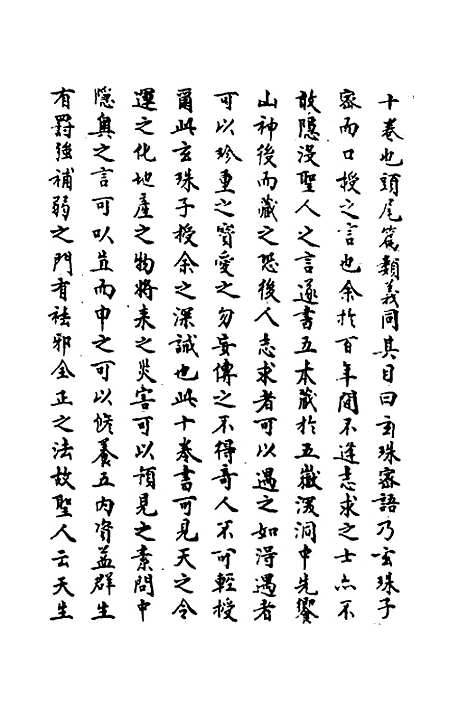 十卷也頭尾篇類義同其目曰玄珠密語乃玄珠子
密而口授之言也余於百年間不逢志求之士亦不
敢隱没聖人之言遂書五本藏於五嶽深洞中先饗
山神後而藏之恐後人志求者可以遇之如得遇者
可以珍重之寶愛之勿妄傳之不得奇人不可輕授
爾此玄珠子授余之深誡也此十卷書可見天之令
運之化地產之物將来之災害可以預見之素問中
隱奥之言可以直而申之可以修養五内資益群生
有罸強補弱之門有祛邪全正之法故聖人云天生